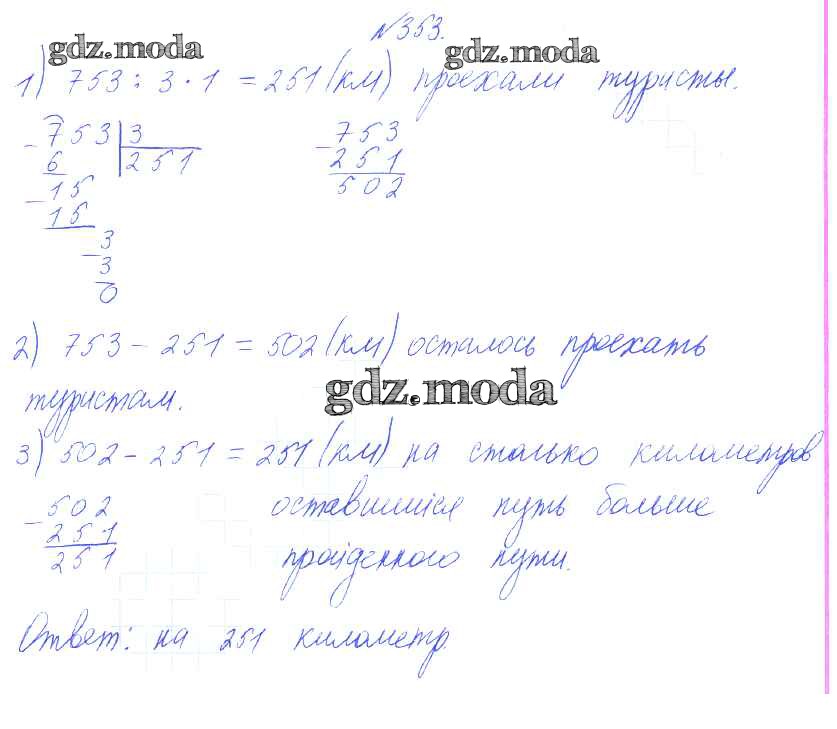 №353.
gdz.moda gdz.moda
1) 753 : 3 · 1 = 251 (км) проехали туристы.
- 753 | 3
6 | 251
- 15
15
- 3
3
0
- 753
251
502
2) 753 - 251 = 502 (км) осталось проехать
туристам.
gdz.moda
3) 502 - 251 = 251 (км) на столько километров
оставшийся путь больше
пройденного пути.
- 502
251
251
Ответ: на 251 километр.